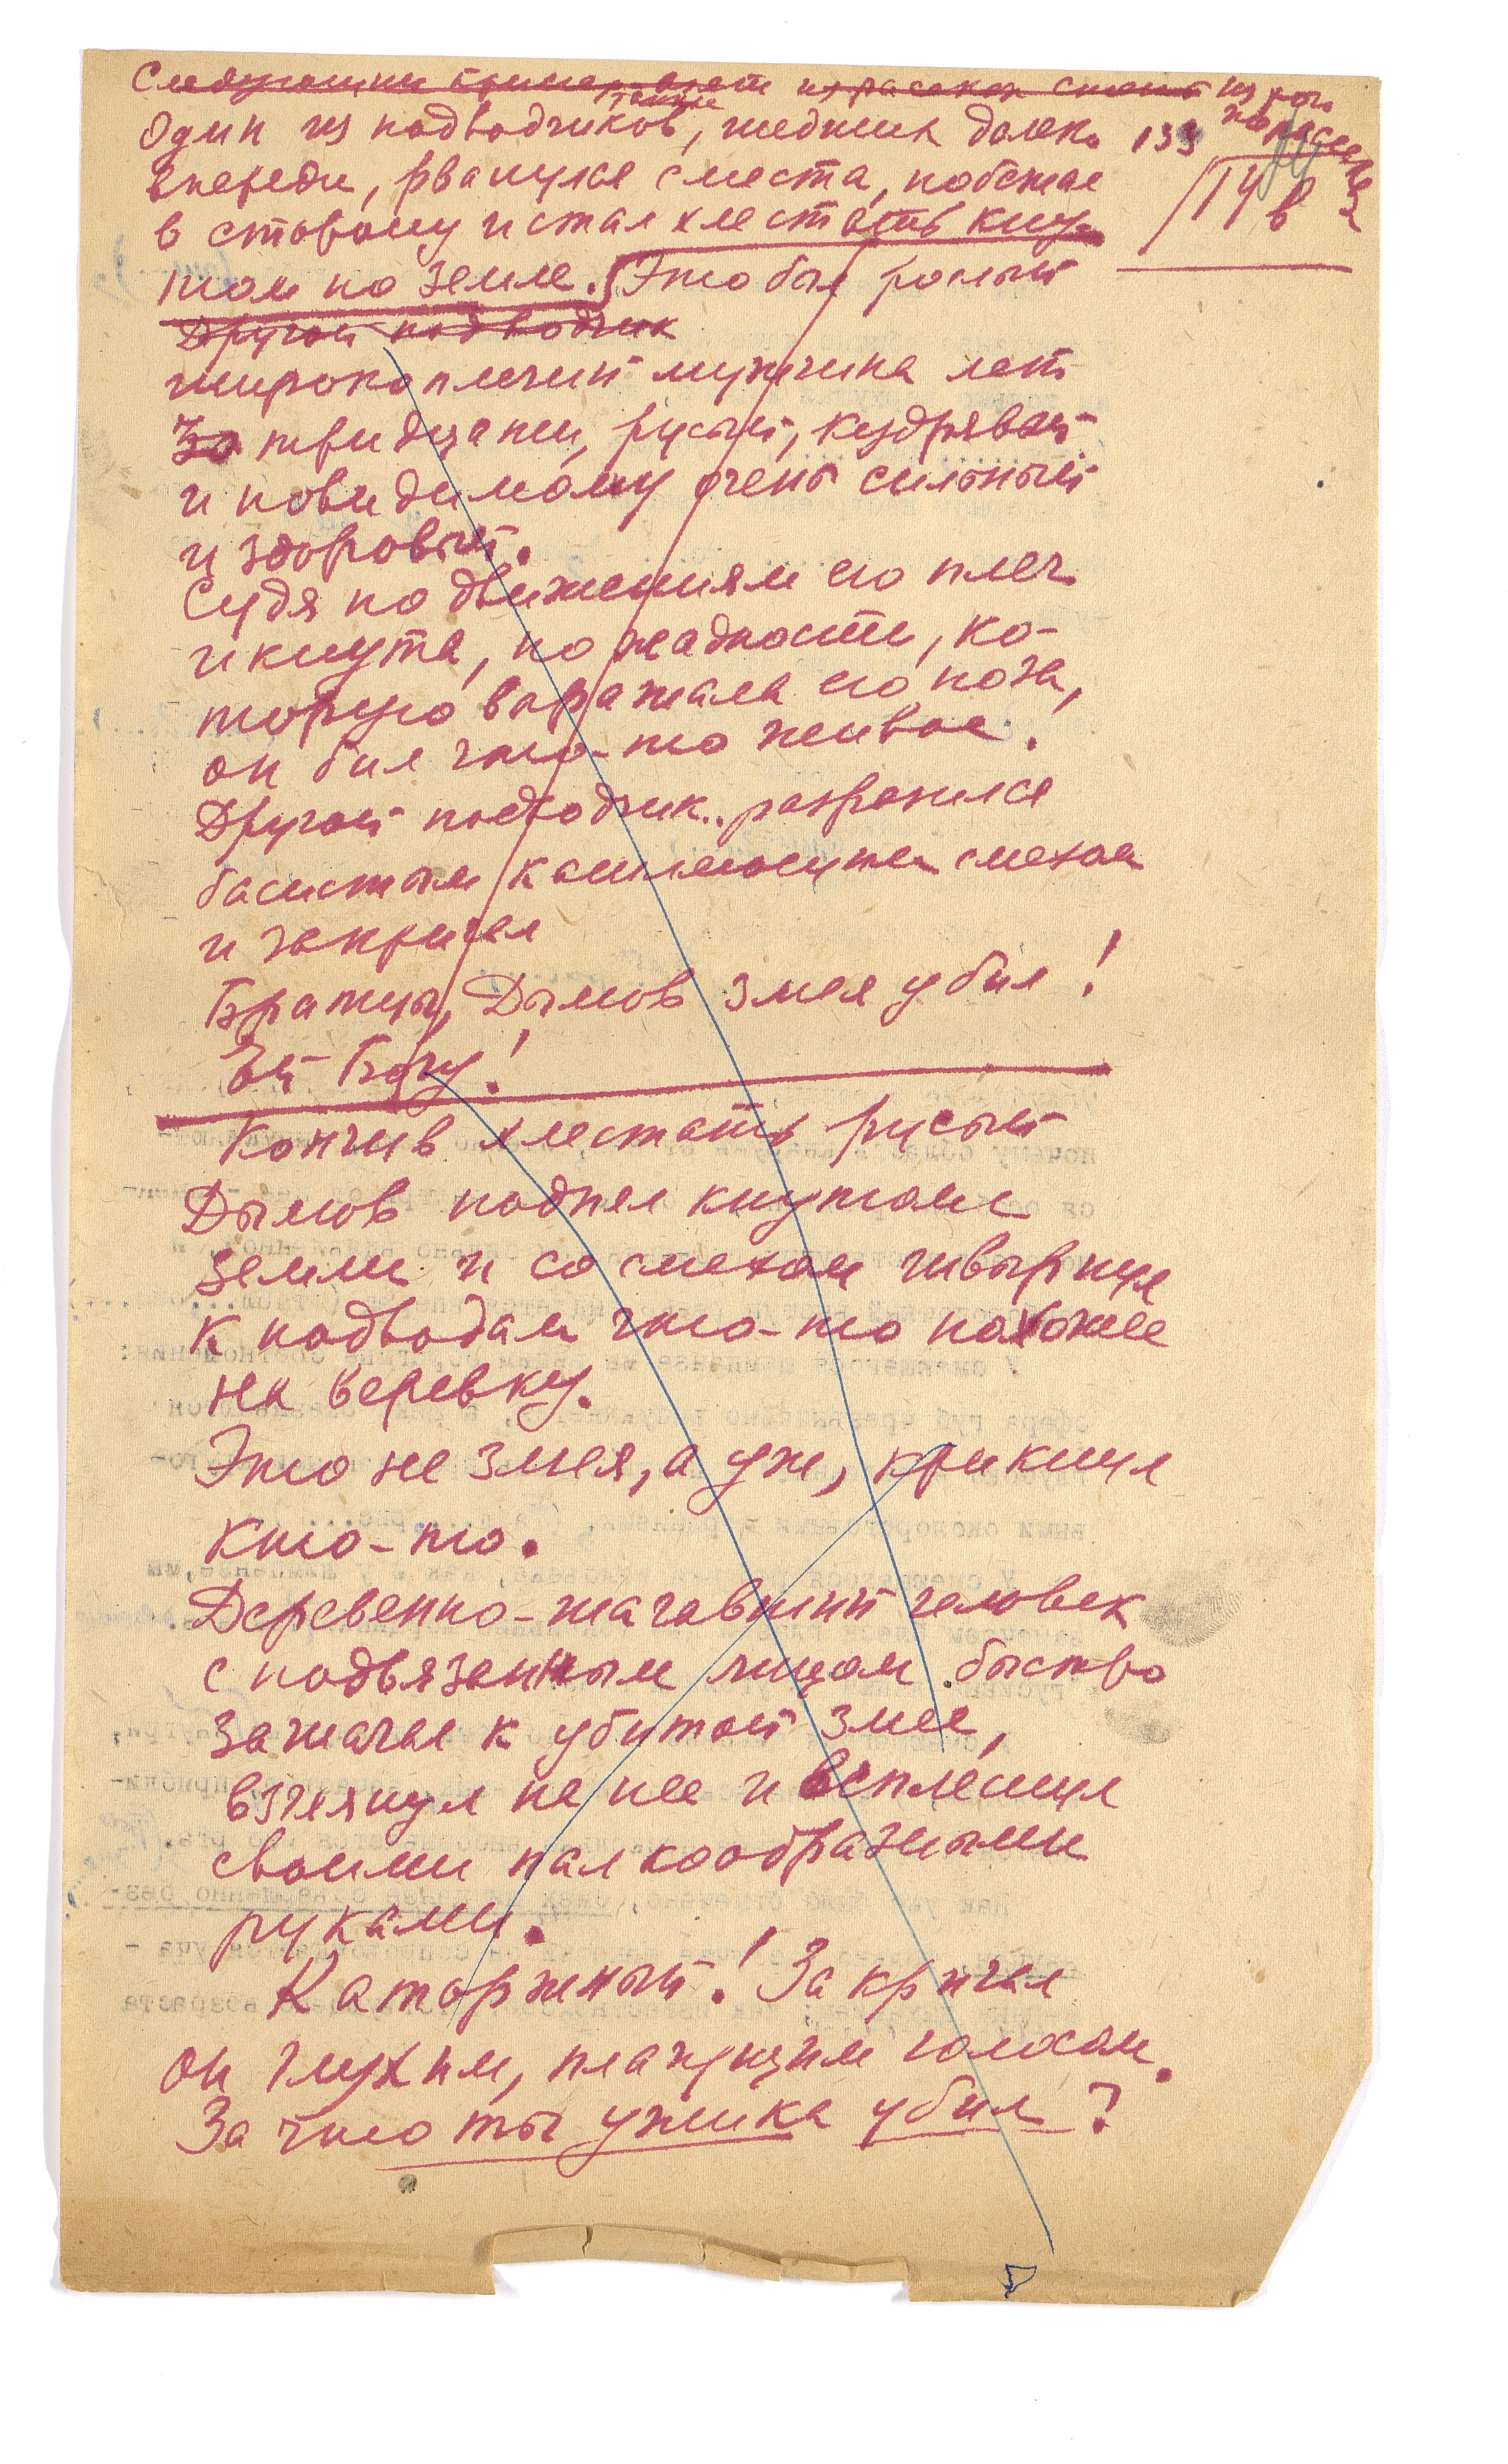 Один из подводчиков, шедших далеко 133
впереди, рванулся с места, побежал
в сторону и стал хлестать кну-
том по земле. Это был рослый
Другой подводчик
широкоплечий мужчина лет
За тридцати, русый, кудрявый
и повидимому очень сильный
и здоровый.
Судя по движениям его плеч
и кнута, по жадности, ко-
торую выражала его поза,
он бил что-то живое.
Другой подводчик.. разразился
басистым кашляющим смехом
и закричал
Братцы, Дымов змея убил!
Ей Богу!
Кончив хлестать русый
Дымов поднял кнутом с
земли и со смехом швырнул
к подводам что-то похожее
на веревку.
Это не змея, а уж, крикнул
кто-то.
Деревенно-шагавший человек
с подвязанным лицом быстро
зашагал к убитой змее,
взглянул на нее и всплеснул
своими палкообразными
руками.
Каторжный! Закричал
он глухим, плачущим голосом.
За что ты ужика убил?